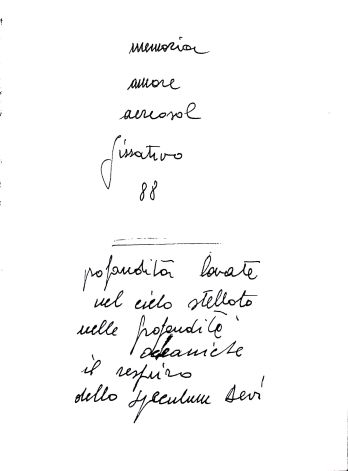 memoria
amore
aereosol
fissativo
88
profondità lavate
nel cielo stellato
nelle profondità
oceaniche
il respiro
dello speculum Devi